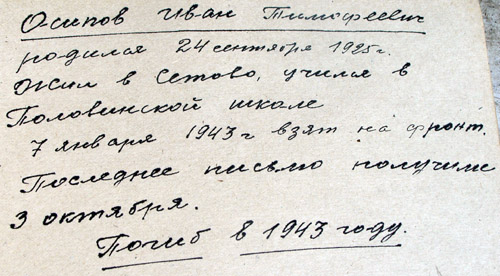 Осипов Иван Тимофеевич
родился 24 сентября 1925 г.
Жил в Сетово, учился в
Половинской школе
7 января 1943 г взят на фронт.
Последнее письмо получили
3 октября.
Погиб в 1943 году.